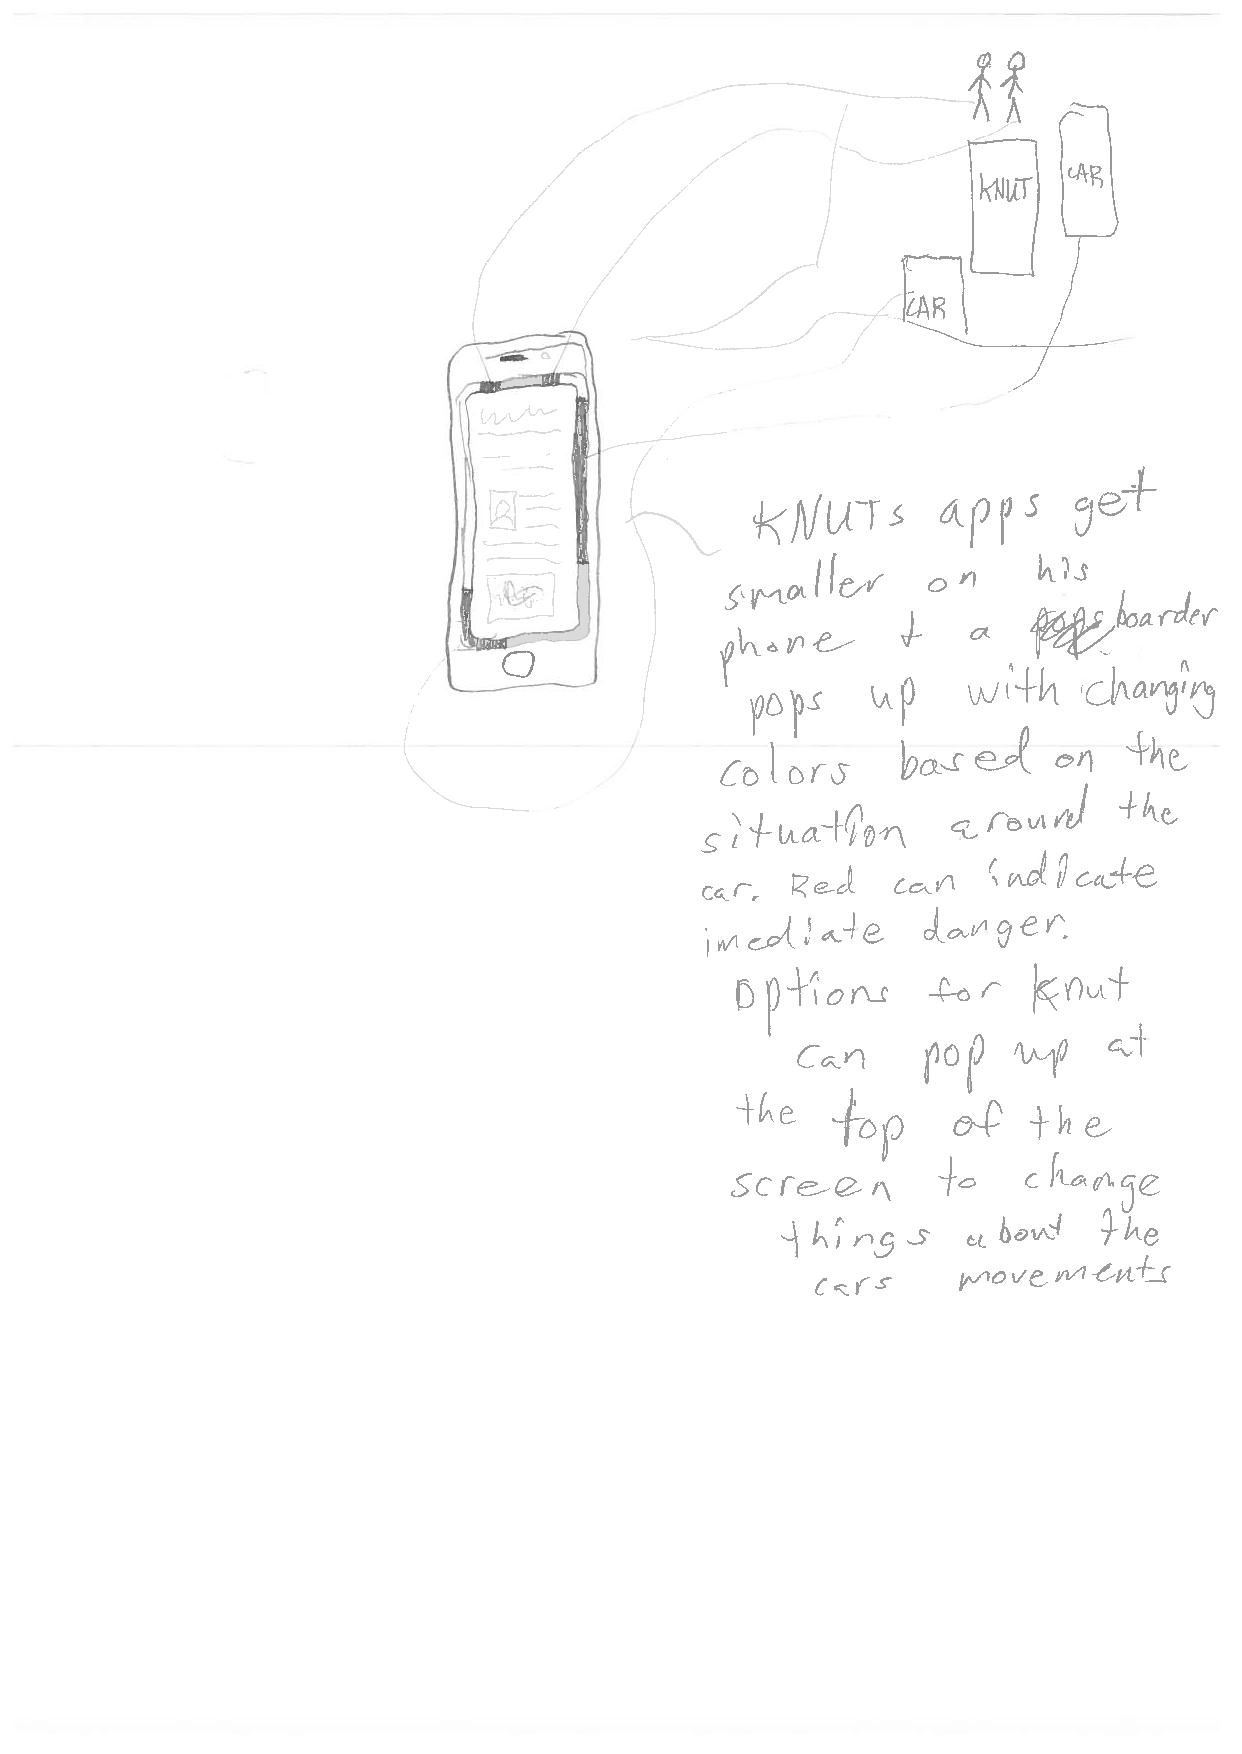 KNUT
CAR
CAR
KNUTs apps get
smaller on his
phone + a pops boarder
pops up with changing
colors based on the
situation around the
car. Red can indicate
imediate danger.
Options for Knut
can pop up at
the top of the
screen to change
things about the
cars movements